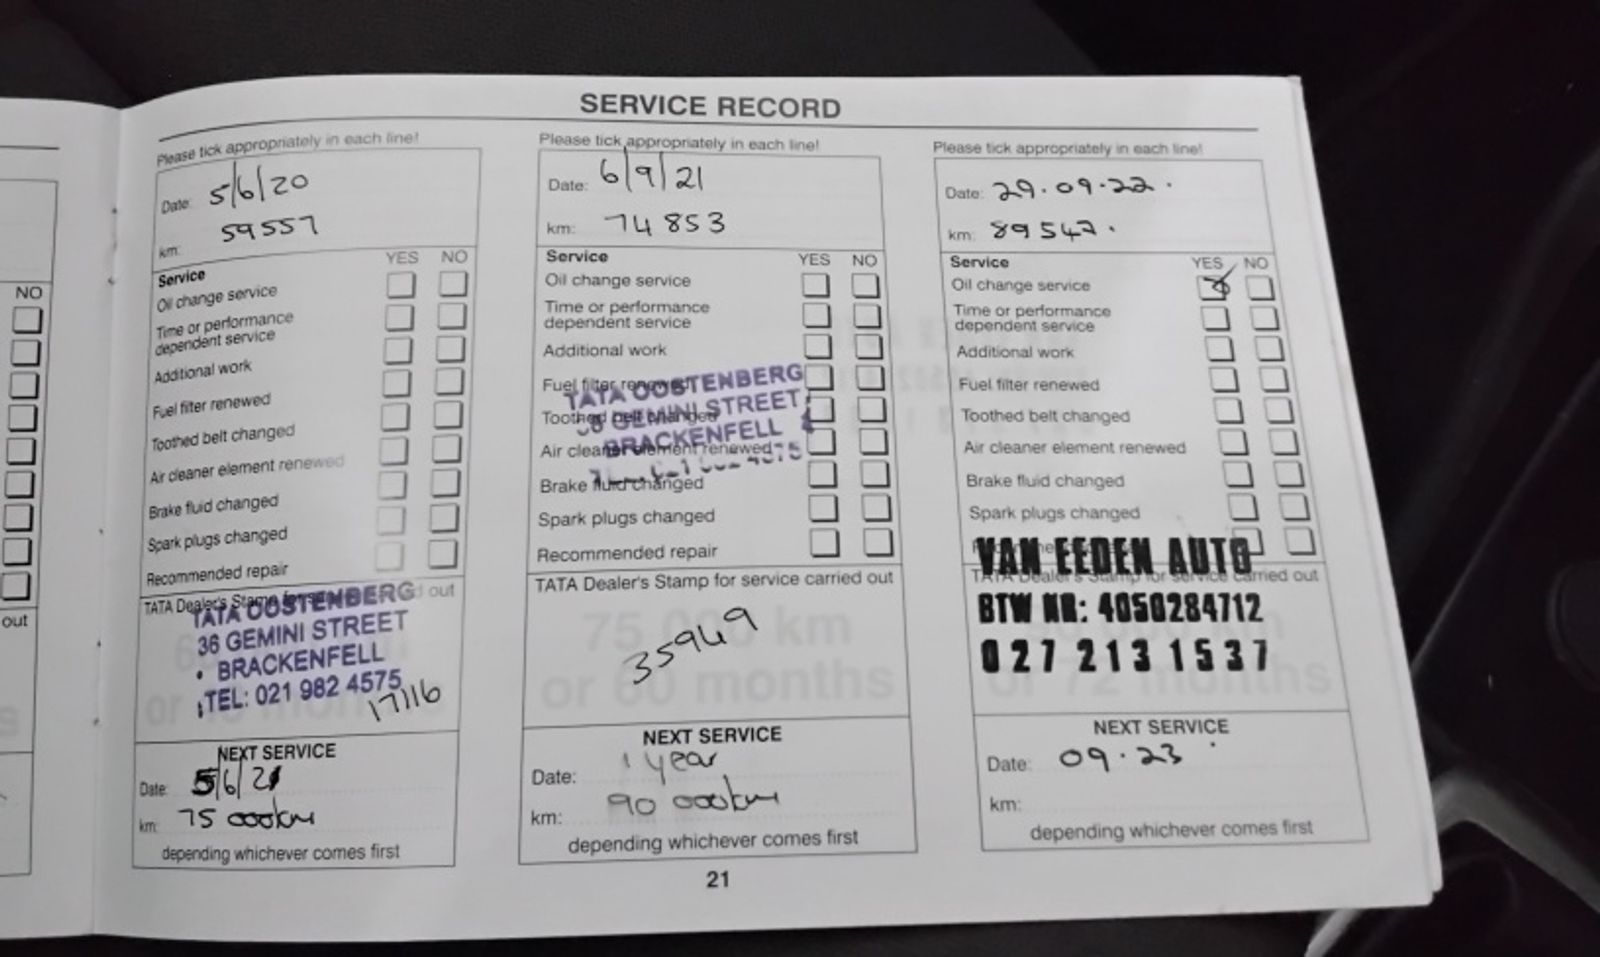 NO
out
SERVICE RECORD
Please tick appropriately in each line!
Date: 5/6/20
km: 59557
YES NO
Service
Oil change service
Time or performance
dependent service
Additional work
Fuel filter renewed
Toothed belt changed
Air cleaner element renewed
Brake fluid changed
Spark plugs changed
Recommended repair
TATA Dealer's Stamp for service carried out
TATA OOSTENBERG
36 GEMINI STREET
BRACKENFELL
TEL: 021 982 4575
17116
NEXT SERVICE
Date: 5/6/21
km: 75 000km
depending whichever comes first
Please tick appropriately in each line!
Date: 6/9/21
km: 74853
Service YES NO
Oil change service
Time or performance
dependent service
Additional work
Fuel filter renewed
TATA OOSTENBERG
Toothed belt changed
36 GEMINI STREET
BRACKENFELL
Air cleaner element renewed
021 982 4575
Brake fluid changed
Spark plugs changed
Recommended repair
TATA Dealer's Stamp for service carried out
75 000 km
or 60 months
35949
NEXT SERVICE
Date: 1 year
km: 90 000km
depending whichever comes first
Please tick appropriately in each line!
Date: 29.09.22.
km: 89542.
Service YES NO
Oil change service
Time or performance
dependent service
Additional work
Fuel filter renewed
Toothed belt changed
Air cleaner element renewed
Brake fluid changed
Spark plugs changed
Recommended repair
VAN EEDEN AUTO
TATA Dealer's Stamp for service carried out
BTW NR: 4050284712
027 213 1537
or 72 months
NEXT SERVICE
Date: 09.23
km:
depending whichever comes first
21